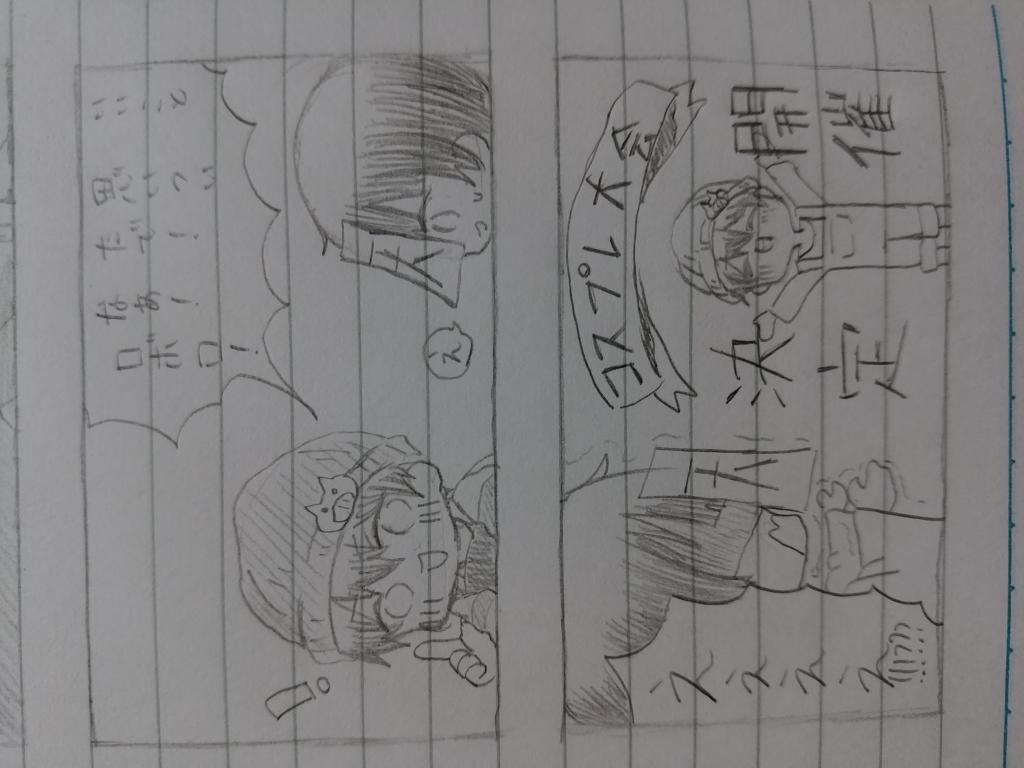 いいこと
思いつい
たで！
なあ！
ロボロ！
天
え
コスプレ大会
開催
決定
天
ええええ